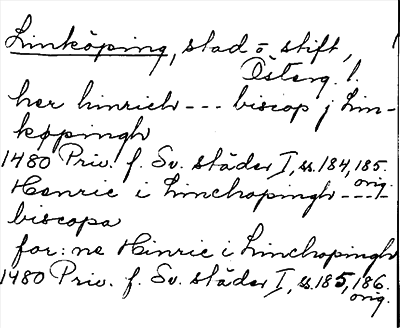 Linköping, stad o stift,
Österg. l.
her hinrich --- biscop j Lin-
køpingh
1480 Priv. f. Sv. städer I, s. 184, 185.
orig.
Henric i Linchopingh ---
biscopa
for: ne Hinric i Linchopingh
1480 Priv. f. Sv. städer I, s. 185, 186.
orig.